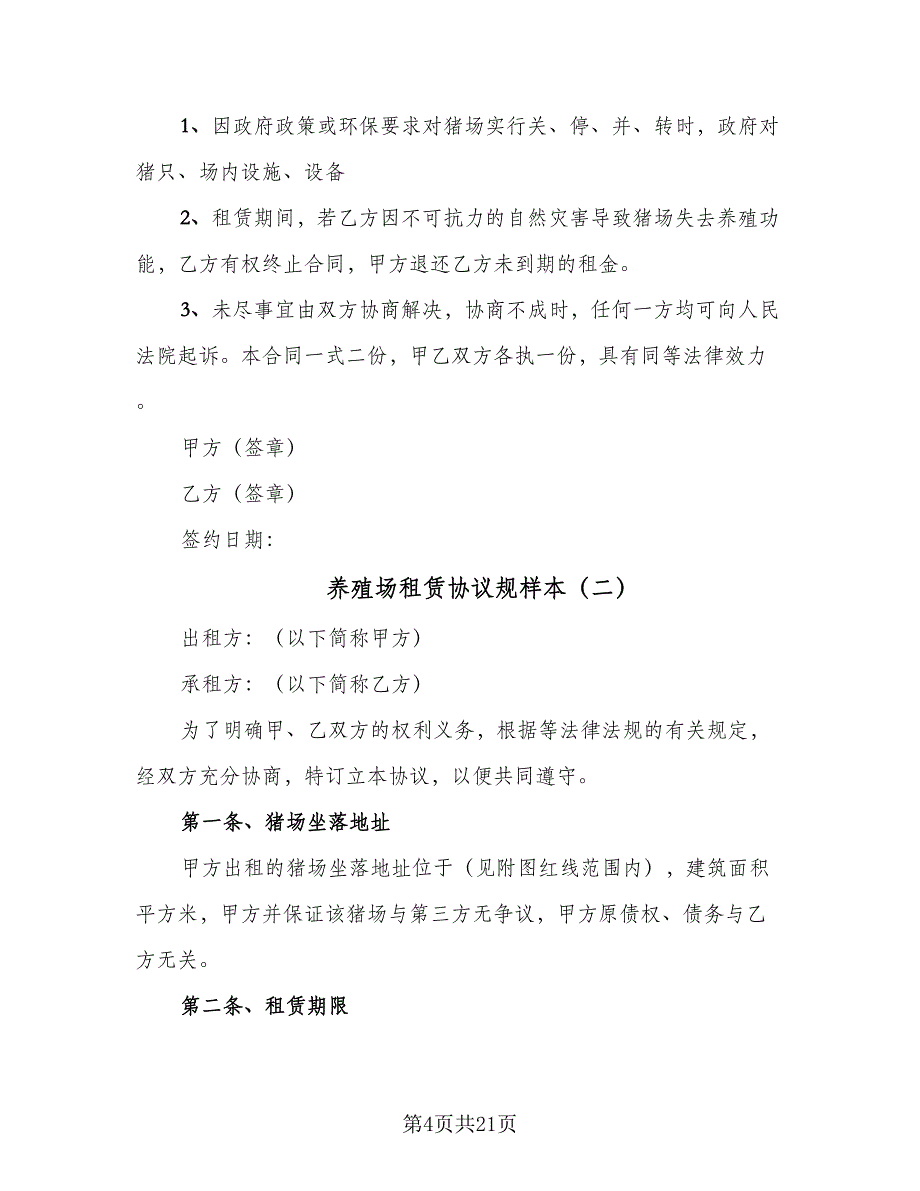 1、因政府政策或环保要求对猪场实行关、停、并、转时，政府对
猪只、场内设施、设备
2、租赁期间，若乙方因不可抗力的自然灾害导致猪场失去养殖功
能，乙方有权终止合同，甲方退还乙方未到期的租金。
3、未尽事宜由双方协商解决，协商不成时，任何一方均可向人民
法院起诉。本合同一式二份，甲乙双方各执一份，具有同等法律效力
。
甲方（签章）
乙方（签章）
签约日期：
养殖场租赁协议规样本（二）
出租方：（以下简称甲方）
承租方：（以下简称乙方）
为了明确甲、乙双方的权利义务，根据等法律法规的有关规定，
经双方充分协商，特订立本协议，以便共同遵守。
第一条、猪场坐落地址
甲方出租的猪场坐落地址位于（见附图红线范围内），建筑面积
平方米，甲方并保证该猪场与第三方无争议，甲方原债权、债务与乙
方无关。
第二条、租赁期限
第4页共21页